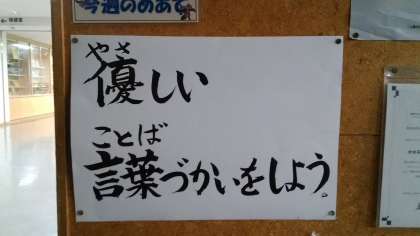 今週のめあて
やさ
優しい
ことば
言葉づかいをしよう。